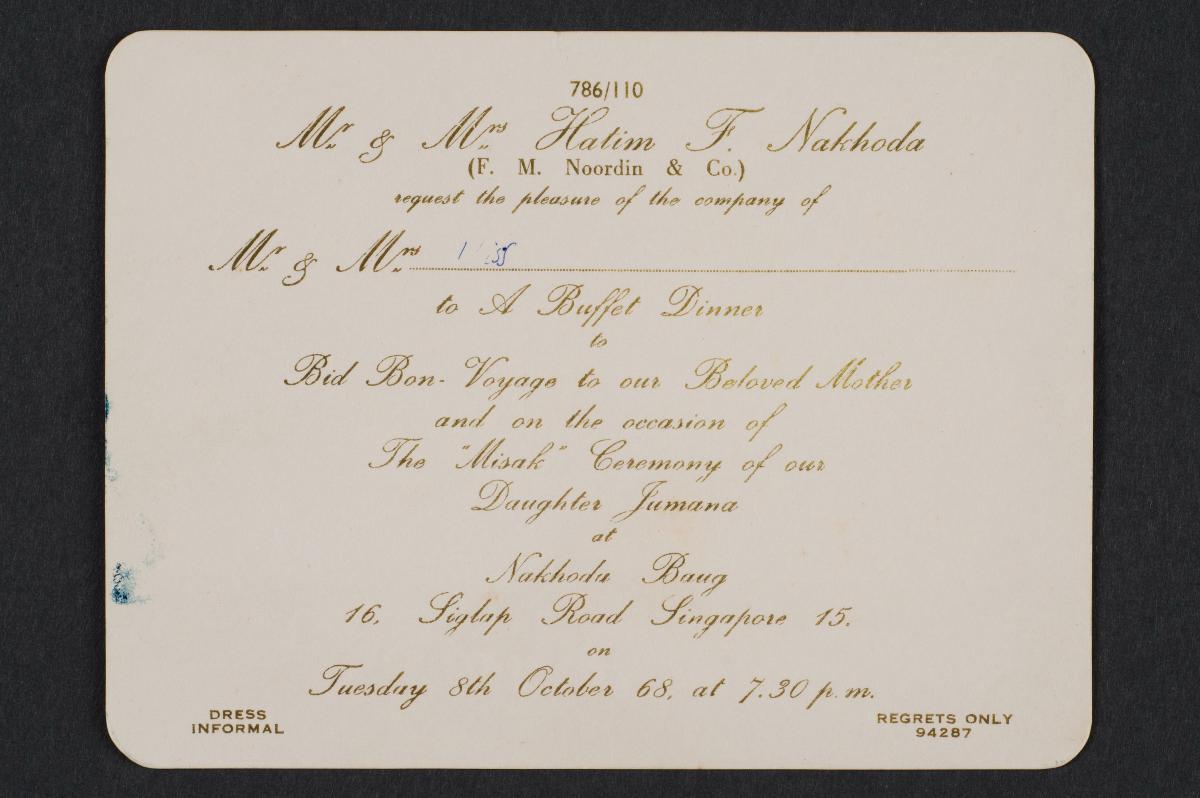 786/110
Mr. & Mrs. Hatim F. Nakhoda
(F. M. Noordin & Co.)
request the pleasure of the company of
Mr. & Mrs.
to A Buffet Dinner
to
Bid Bon-Voyage to our Beloved Mother
and on the occasion of
The "Misak" Ceremony of our
Daughter Jumana
at
Nakhoda Baug
16, Siglap Road Singapore 15.
on
Tuesday 8th October 68, at 7.30 p.m.
DRESS
INFORMAL
REGRETS ONLY
94287